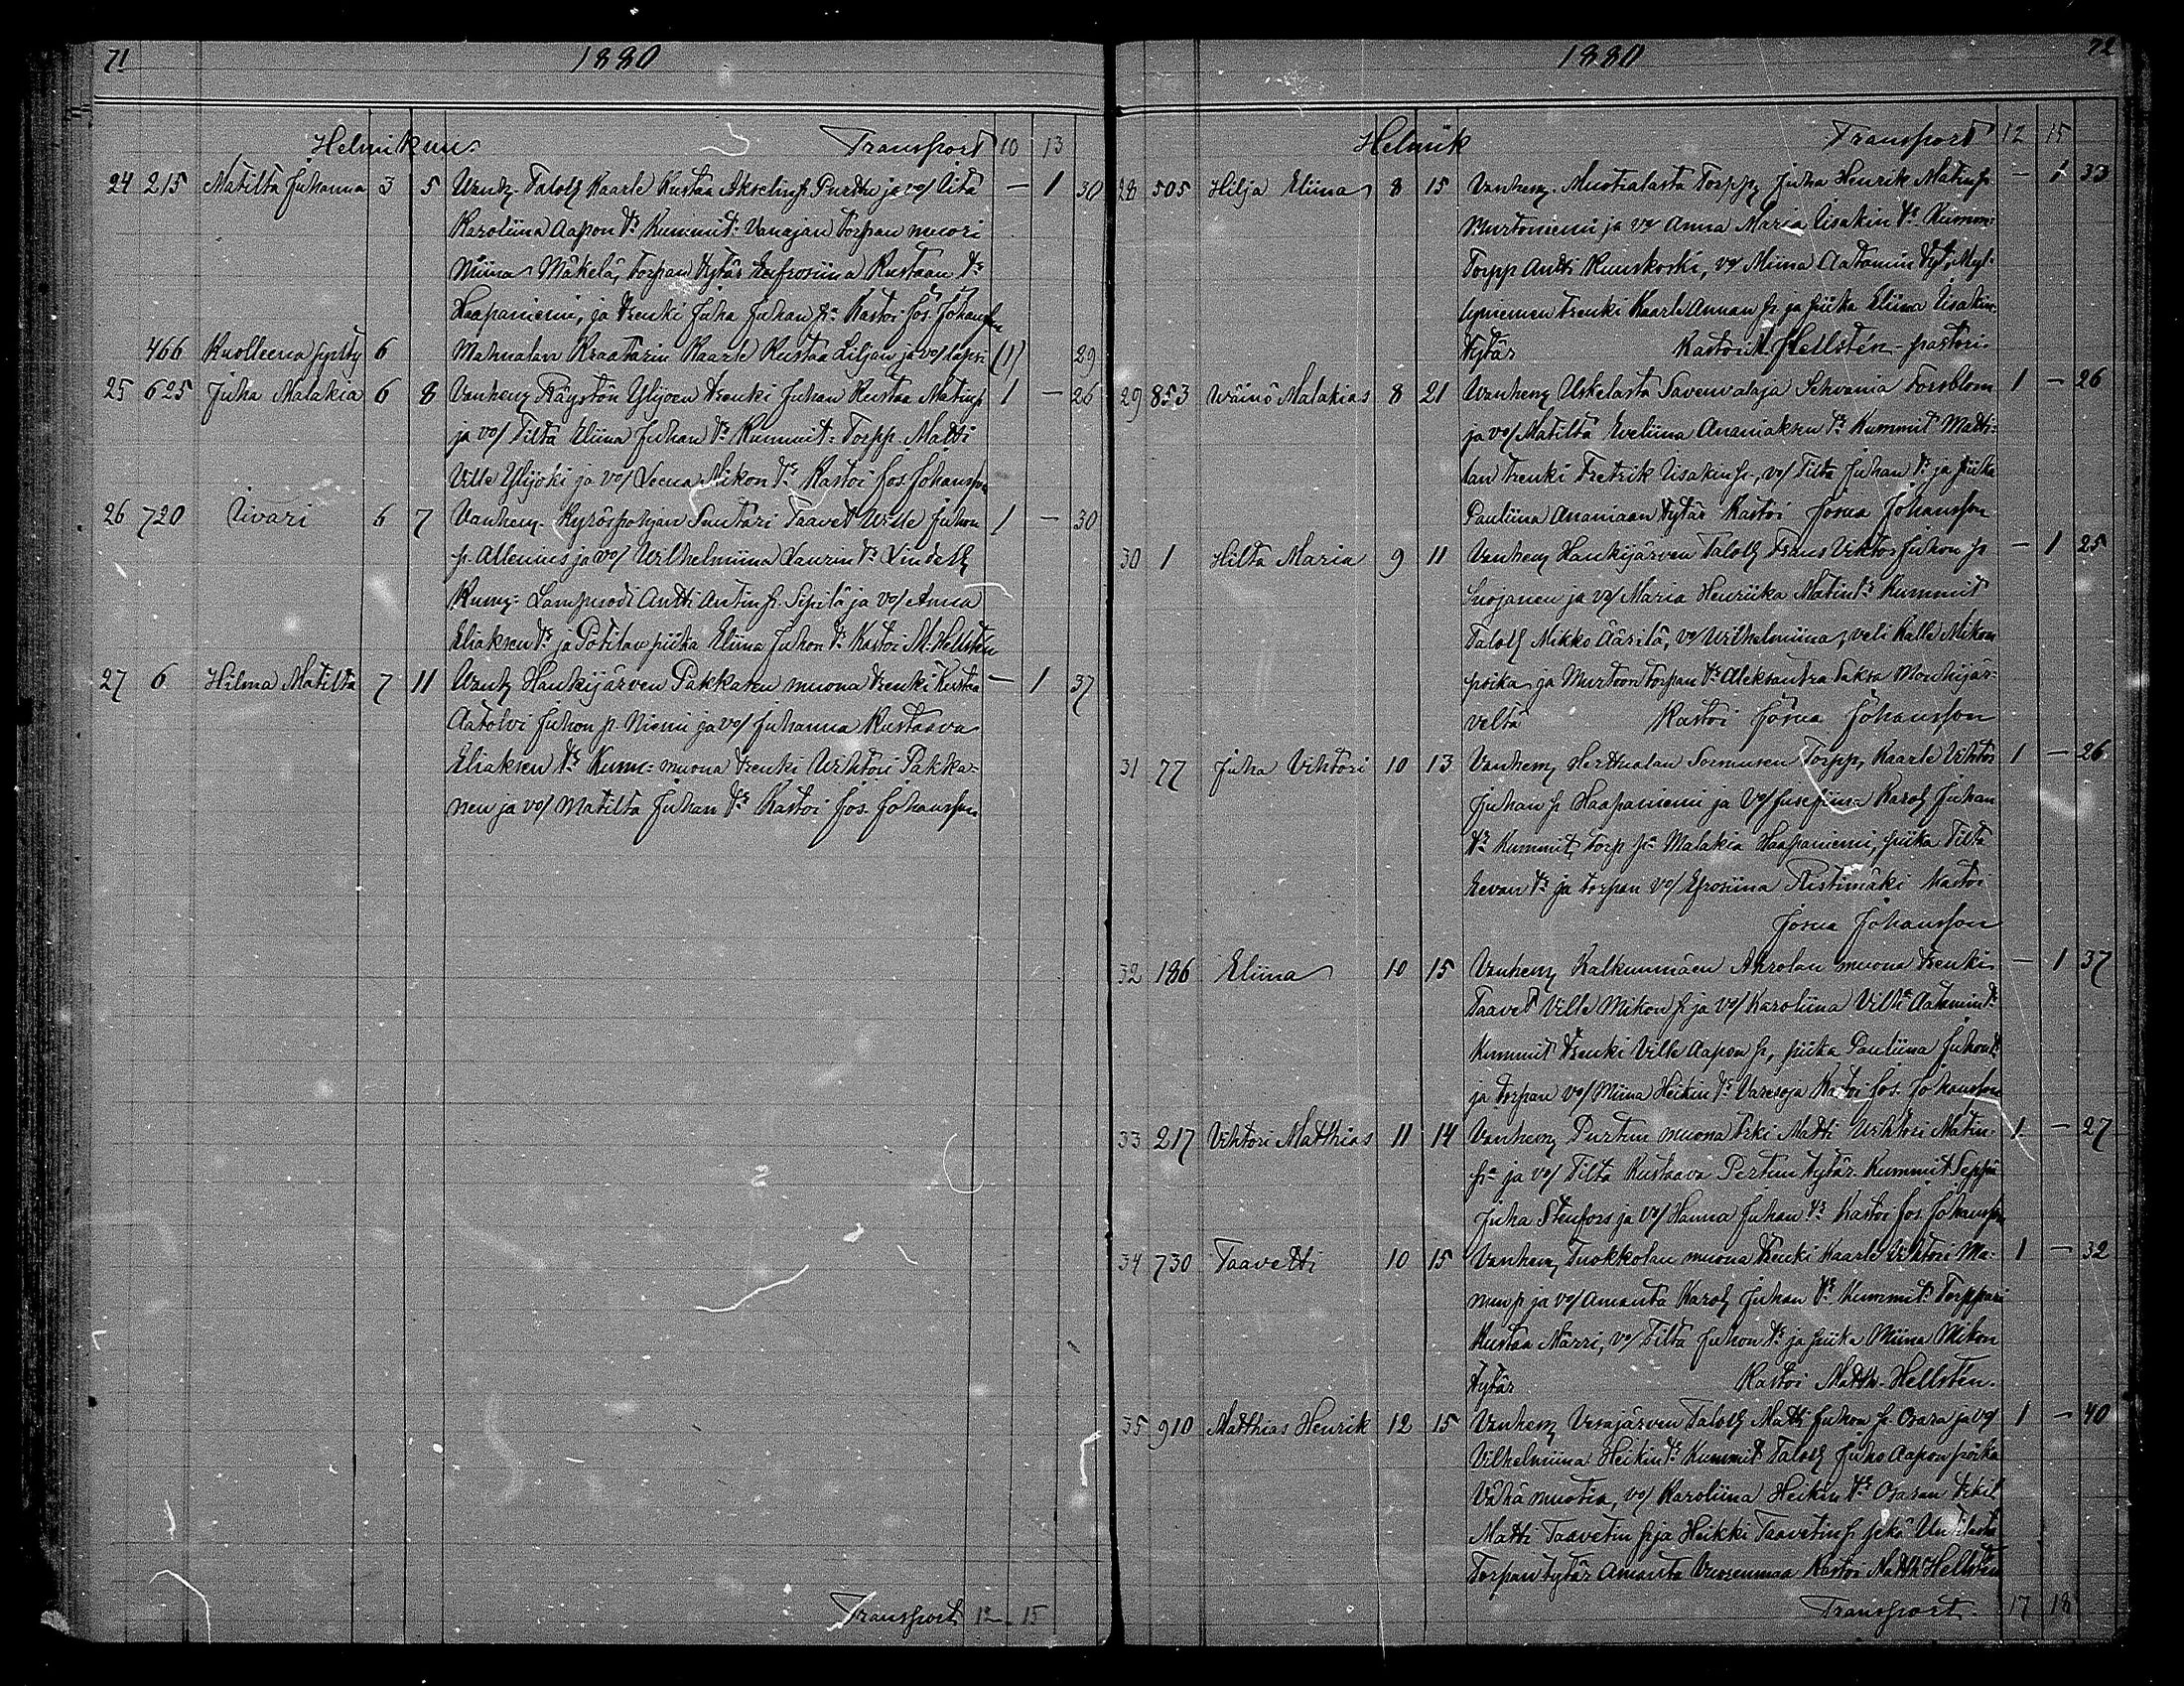 71 1880
Helmikuu. Transport 10 13
24 215 Matilta Juhanna 3 5 Vanh. Taloll. Kaarle Kustaa Akselinp. Purttu ja vo/ Iita — 1 30
Karoliina Aapon tr. Kummit: Vanajan torpan muori
Miina Mäkelä, torpan tytär Eufrosiina Kustaan tr.
Haapaniemi, ja trenki Juha Juhan p. Kastoi Jos. Johansson
466 Kuolleena synty 6 Mahnalan Kraatarin Kaarle Kustaa Liljan ja vo/ lapsi (1) 29
25 625 Juha Malakia 6 8 Vanhem. Räystön Ylijoen trenki Juhan Kustaa Matinp. 1 — 26
ja vo/ Tilta Eliina Juhan tr. Kummit: Torpp. Matti
Ville Ylijoki ja vo/ Leena Mikon tr. Kastoi Jos. Johansson
26 720 Iivari 6 7 Vanhem. Kyröspohjan Suutari Taavet Wille Juhon 1 — 30
p. Allenius ja vo/ Wilhelmiina Laurin tr. Lindell
Kumm: Lampuodi Antti Antin p. Sipilä ja vo/ Anna
Eliaksen tr. ja Potilan piika Eliina Juhon tr. Kastoi M. Hellstén
27 6 Hilma Matilta 7 11 Vanh. Hankijärven Pakkasen muona trenki Kustaa — 1 37
Aatolvi Juhon p. Niemi ja vo/ Juhanna Kustaava
Eliaksen tr. Kumm: muona trenki Wihtori Pakka-
nen ja vo/ Matilta Juhan tr. Kastoi Jos. Johansson.
Transport 12 15
1880 72
Helmik Transport 12 15
28 505 Hilja Eliina 8 15 Vanhem. Muotialasta Torpp. Juha Henrik Matinp. — 1 33
Murtoniemi ja vo/ Anna Maria Iisakin tr. Kumm:
Torpp Antti Kuuskoski, vo/ Miina Aatamin tyt. Myl-
lyniemen trenki Kaarle Annan p. ja piika Eliina Iisakin
tytär Kastoi M. Hellstén - pastori
29 853 Wäinö Malakias 8 21 Vanhem. Uskelasta Savenvalaja Sehvania Forsblom 1 — 26
ja vo/ Matilta Eveliina Ananiaksen tr. Kummit Matti-
lan trenki Fretrik Iisakin p., vo/ Tilta Juhan tr. ja piika
Pauliina Ananiaan tytär Kastoi Josua Johansson
30 1 Hilta Maria 9 11 Vanhem Hankijärven Taloll Frans Viktor Juhon p. — 1 25
Suojanen ja vo/ Maria Henriika Matin tr. Kummit
Taloll Mikko Äärilä, vo/ Wilhelmiina, veli Kalle Mikon
poika ja Murtoon torpan tr. Aleksantra Saksa Mouhijär-
veltä Kastoi Josua Johansson
31 77 Juha Vihtori 10 13 Vanhem. Herttualan Sormusen Torpp, Kaarle Vihtor 1 — 26
Juhan p. Haapaniemi ja vo/ Jusefiina Karol. Juhan
tr. Kummit, Torp p. Malakia Haapaniemi, piika Tilta
Eevan tr. ja torpan vo/ Efrosiina Ristimäki Kastoi
Josua Johansson
32 186 Eliina 10 15 Vanhem. Kalkunmäen Ahrolan muona trenki — 1 37
Taavet Ville Mikon p. ja vo/ Karoliina Vilh. Aatamin tr.
Kummit trenki Ville Aapon p., piika Pauliina Juhon t.
ja torpan vo/ Miina Heikin tr. Varesoja Kastoi Jos. Johansson
33 217 Vihtori Matthias 11 14 Vanhem. Purtun muona trki Matti Vihtori Matin- 1 — 27
p. ja vo/ Tilta Kustaava Pertun tytär. Kummit Seppä
Juha Stenfors ja vo/ Hanna Juhan tr. Kastoi Jos. Johansson
34 730 Taavetti 10 15 Vanhem. Tuokkolan muona trenki Kaarle Vihtori Ma- 1 — 32
nun p. ja vo/ Amanta Karol. Juhan tr. Kummit: Torppari
Kustaa Märri, vo/ Tilta Juhon tr. ja piika Miina Mikon
tytär Kastoi Matth. Hellstén.
35 910 Matthias Henrik 12 15 Vanhem. Vesajärven Taloll. Matti Juhon p. Osara ja vo/ 1 — 40
Vilhelmiina Heikin tr. Kummit Taloll Juho Aapon poika
Vähä muotia, vo/ Karoliina Heikin tr. Osaran trkit
Matti Taavetin p. ja Heikki Taavetin p. sekä Uutilasta
Torpan tytär Amanta Vuorenmaa Kastoi Matth Hellstén
Transport. 17 18